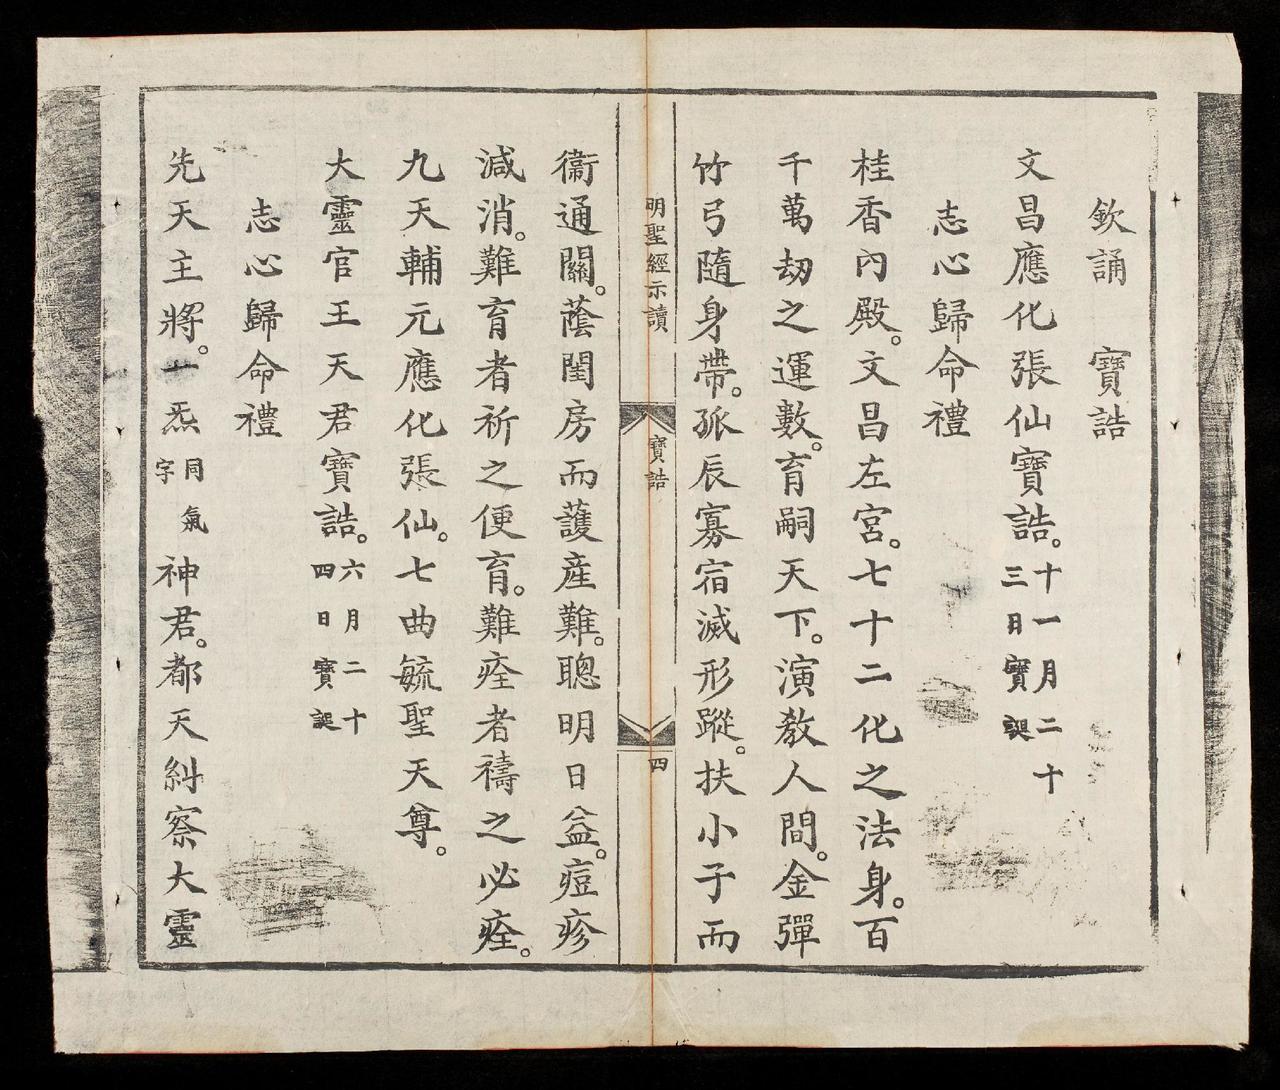 欽誦　寶誥
文昌應化張仙寶誥。十一月二十三日寶誕
志心歸命禮
桂香內殿。文昌左宮。七十二化之法身。百
千萬劫之運數。育嗣天下。演教人間。金彈
竹弓隨身帶。孤辰寡宿滅形蹤。扶小子而
明聖經示讀　寶誥　四
衞通關。蔭閨房而護產難。聰明日益。痘疹
減消。難育者祈之便育。難痊者禱之必痊。
九天輔元應化張仙。七曲毓聖天尊。
大靈官王天君寶誥。六月二十四日寶誕
志心歸命禮
先天主將。一炁同氣字神君。都天糾察大靈